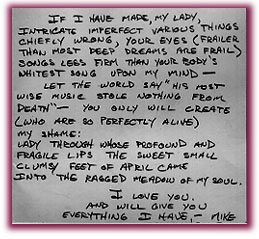 IF I HAVE MADE, MY LADY,
INTRICATE IMPERFECT VARIOUS THINGS
CHIEFLY WRONG, YOUR EYES (FRAILER
THAN MOST DEEP DREAMS ARE FRAIL)
SONGS LESS FIRM THAN YOUR BODY'S
WHITEST SONG UPON MY MIND —
LET THE WORLD SAY "HIS MOST
WISE MUSIC STOLE NOTHING FROM
DEATH" — YOU ONLY WILL CREATE
(WHO ARE SO PERFECTLY ALIVE)
MY SHAME:
LADY THROUGH WHOSE PROFOUND AND
FRAGILE LIPS THE SWEET SMALL
CLUMSY FEET OF APRIL CAME
INTO THE RAGGED MEADOW OF MY SOUL.
I LOVE YOU.
AND WILL GIVE YOU
EVERYTHING I HAVE, — MIKE